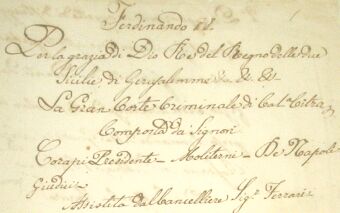 Ferdinando II.
Per la grazia di Dio Re del Regno delle due
Sicilie di Gerusalemme &c &c &c
La Gran Corte Criminale di Cal.a Citra
Composta da Signori
Corapi Presidente - Moliterni - De Napoli
Giudici
Assistita dal Cancelliere Sig.r Ferrari